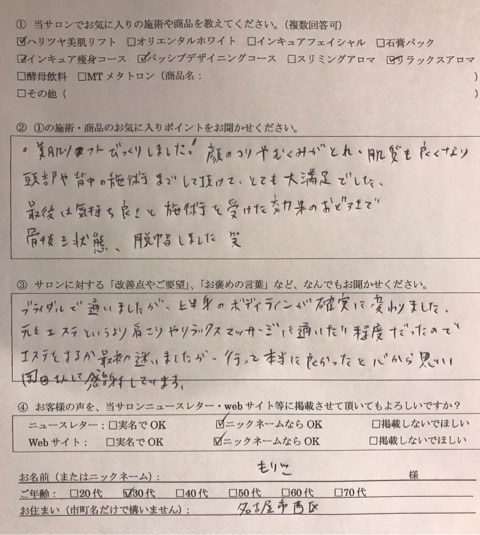 ① 当サロンでお気に入りの施術や商品を教えてください。（複数回答可）
☑ハリツヤ美肌リフト □オリエンタルホワイト □インキュアフェイシャル □石膏パック
☑インキュア痩身コース ☑パッシブデザイニングコース □スリミングアロマ ☑リラックスアロマ
□酵母飲料 □MTメタトロン（商品名： ）
□その他（ ）
② ①の施術・商品のお気に入りポイントをお聞かせください。
・美肌リフトびっくりしました！ 顔のコリやむくみがとれ、肌質も良くなり
頭部や背中の施術までして頂けて、とても大満足でした、
最後は気持ち良さと施術を受けた効果のおどろきで
骨抜き状態、脱帽しました 笑
③ サロンに対する「改善点やご要望」、「お褒めの言葉」など、なんでもお聞かせください。
ブライダルで通いましたが、上半身のボディラインが確実に変わりました、
元々エステというより肩こりやリラックスマッサージに通いたい程度だったので
エステをするか最初迷いましたが、行って本当に良かったと心から思い
さんに感謝してます。
④ お客様の声を、当サロンニュースレター・webサイト等に掲載させて頂いてもよろしいですか？
ニュースレター：□実名でOK ☑ニックネームならOK □掲載しないでほしい
Webサイト：□実名でOK ☑ニックネームならOK □掲載しないでほしい
お名前（またはニックネーム）： もりこ 様
ご年齢：□20代 ☑30代 □40代 □50代 □60代 □70代
お住まい（市町名だけで構いません）： 名古屋市西区